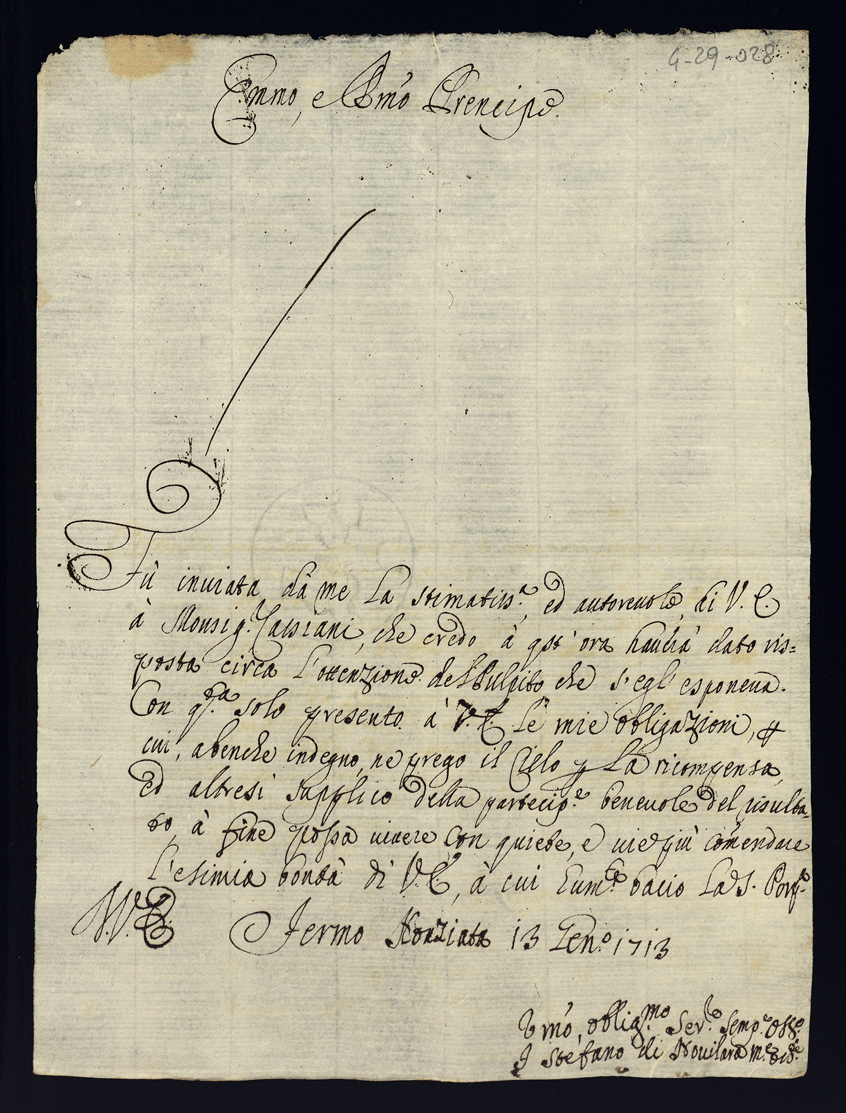 4-29-028
Emmo, e Rmo Prencipe.
Fù inviata dà me la stimatiss.ᵉ, ed autorevole, di V. E.
à Monsig.ʳ Cassiani, che credo à qst'ora haurà dato ris=
posta circa l'ottenzione del Pulpito che s'egl'esponeva.
Con qᵗᵃ solo presento à V. E. le mie obligazioni,
cui, abenche indegno, ne prego il Cielo la ricompensa,
ed altresi supplico della partecip.ᵉ benevole del risulta-
to, à fine possa vivere con quiete, e vie più comendare
l'esimia bontà di V. E., à cui Eum.ᵗᵉ bacio la S. Porp.ᵃ
Di V. E.
Fermo Nonziata 13 Gen.º 1713
Vmo, oblig.ᵐᵒ Ser.ʳᵉ Semp.ᵉ
F Stefano di Novilara